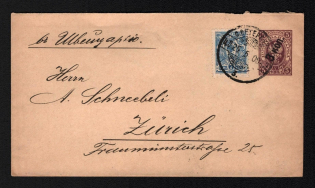 въ Швейцарію.
Herrn
A. Schneebeli
Zürich
Fraumünsterstraße 25.